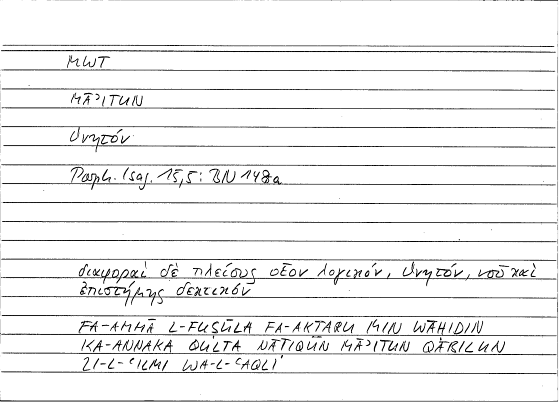 MWT
MĀʾITUN
θνητόν
Porph. Isag. 15,5: BN 148a
διαφοραὶ δὲ πλείους οἷον λογικόν, θνητόν, νοῦ καὶ
ἐπιστήμης δεκτικόν
FA-AMMĀ L-FUṢŪLA FA-AKṮARU MIN WĀḤIDIN
KA-ANNAKA QULTA NĀṬIQUN MĀʾITUN QĀBILUN
LI-L-ʿILMI WA-L-ʿAQLI